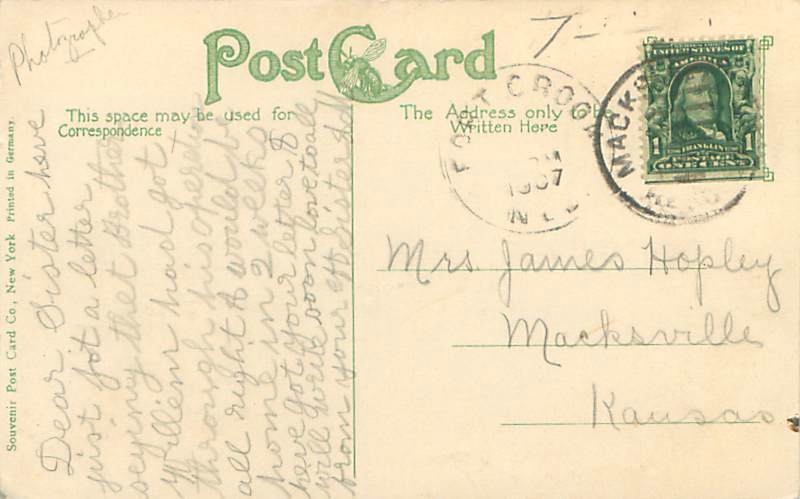 Photographer
Post Card
This space may be used for
Correspondence
The Address only to be
Written Here
Dear Sister have
just got a letter
seying thet Brother
Williem had got
through his operetion
all right & would be
home in 2 weeks
have got your letter &
will write soon love to all
from your aff Sister
Mrs James Hopley
Macksville
Kansas
FORT CROOK
PM
1907
NEB
MACKS
UNITED STATES OF
AMERICA
1 FRANKLIN 1
POSTAGE
ONE CENT
Souvenir Post Card Co., New York Printed in Germany.